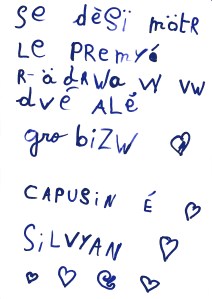 SE DÈSÏ MÖTR
LE PREMYÉ
R-ÄDRWA VV VW
DVÉ ALÉ
gro BiZW
CAPUSiN É
SiLVYAN